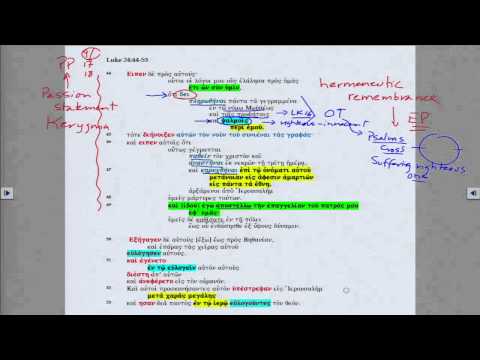 Luke 24:44-53
9/
PP 17
18
Passion
statement
Kerygma
hermeneutic
remembrance
EP
OT
Psalms
Cross
Suffering righteous
one
righteous-innocent
44 Εἶπεν δὲ πρὸς αὐτούς·
οὗτοι οἱ λόγοι μου οὓς ἐλάλησα πρὸς ὑμᾶς
ἔτι ὢν σὺν ὑμῖν,
ὅτι δεῖ
πληρωθῆναι πάντα τὰ γεγραμμένα
ἐν τῷ νόμῳ Μωϋσέως
καὶ τοῖς προφήταις
καὶ ψαλμοῖς
περὶ ἐμοῦ.
45 τότε διήνοιξεν αὐτῶν τὸν νοῦν τοῦ συνιέναι τὰς γραφάς·
46 καὶ εἶπεν αὐτοῖς ὅτι
οὕτως γέγραπται
παθεῖν τὸν χριστὸν καὶ
ἀναστῆναι ἐκ νεκρῶν τῇ τρίτῃ ἡμέρᾳ,
47 καὶ κηρυχθῆναι ἐπὶ τῷ ὀνόματι αὐτοῦ
μετάνοιαν εἰς ἄφεσιν ἁμαρτιῶν
εἰς πάντα τὰ ἔθνη.
ἀρξάμενοι ἀπὸ Ἰερουσαλὴμ
48 ὑμεῖς μάρτυρες τούτων.
49 καὶ [ἰδοὺ] ἐγὼ ἀποστέλλω τὴν ἐπαγγελίαν τοῦ πατρός μου
ἐφ᾽ ὑμᾶς·
ὑμεῖς δὲ καθίσατε ἐν τῇ πόλει
ἕως οὗ ἐνδύσησθε ἐξ ὕψους δύναμιν.
50 Ἐξήγαγεν δὲ αὐτοὺς [ἔξω] ἕως πρὸς Βηθανίαν,
καὶ ἐπάρας τὰς χεῖρας αὐτοῦ
εὐλόγησεν αὐτούς.
51 καὶ ἐγένετο
ἐν τῷ εὐλογεῖν αὐτὸν αὐτοὺς
διέστη ἀπ᾽ αὐτῶν
καὶ ἀνεφέρετο εἰς τὸν οὐρανόν.
52 Καὶ αὐτοὶ προσκυνήσαντες αὐτὸν ὑπέστρεψαν εἰς Ἰερουσαλὴμ
μετὰ χαρᾶς μεγάλης
53 καὶ ἦσαν διὰ παντὸς ἐν τῷ ἱερῷ εὐλογοῦντες τὸν θεόν.